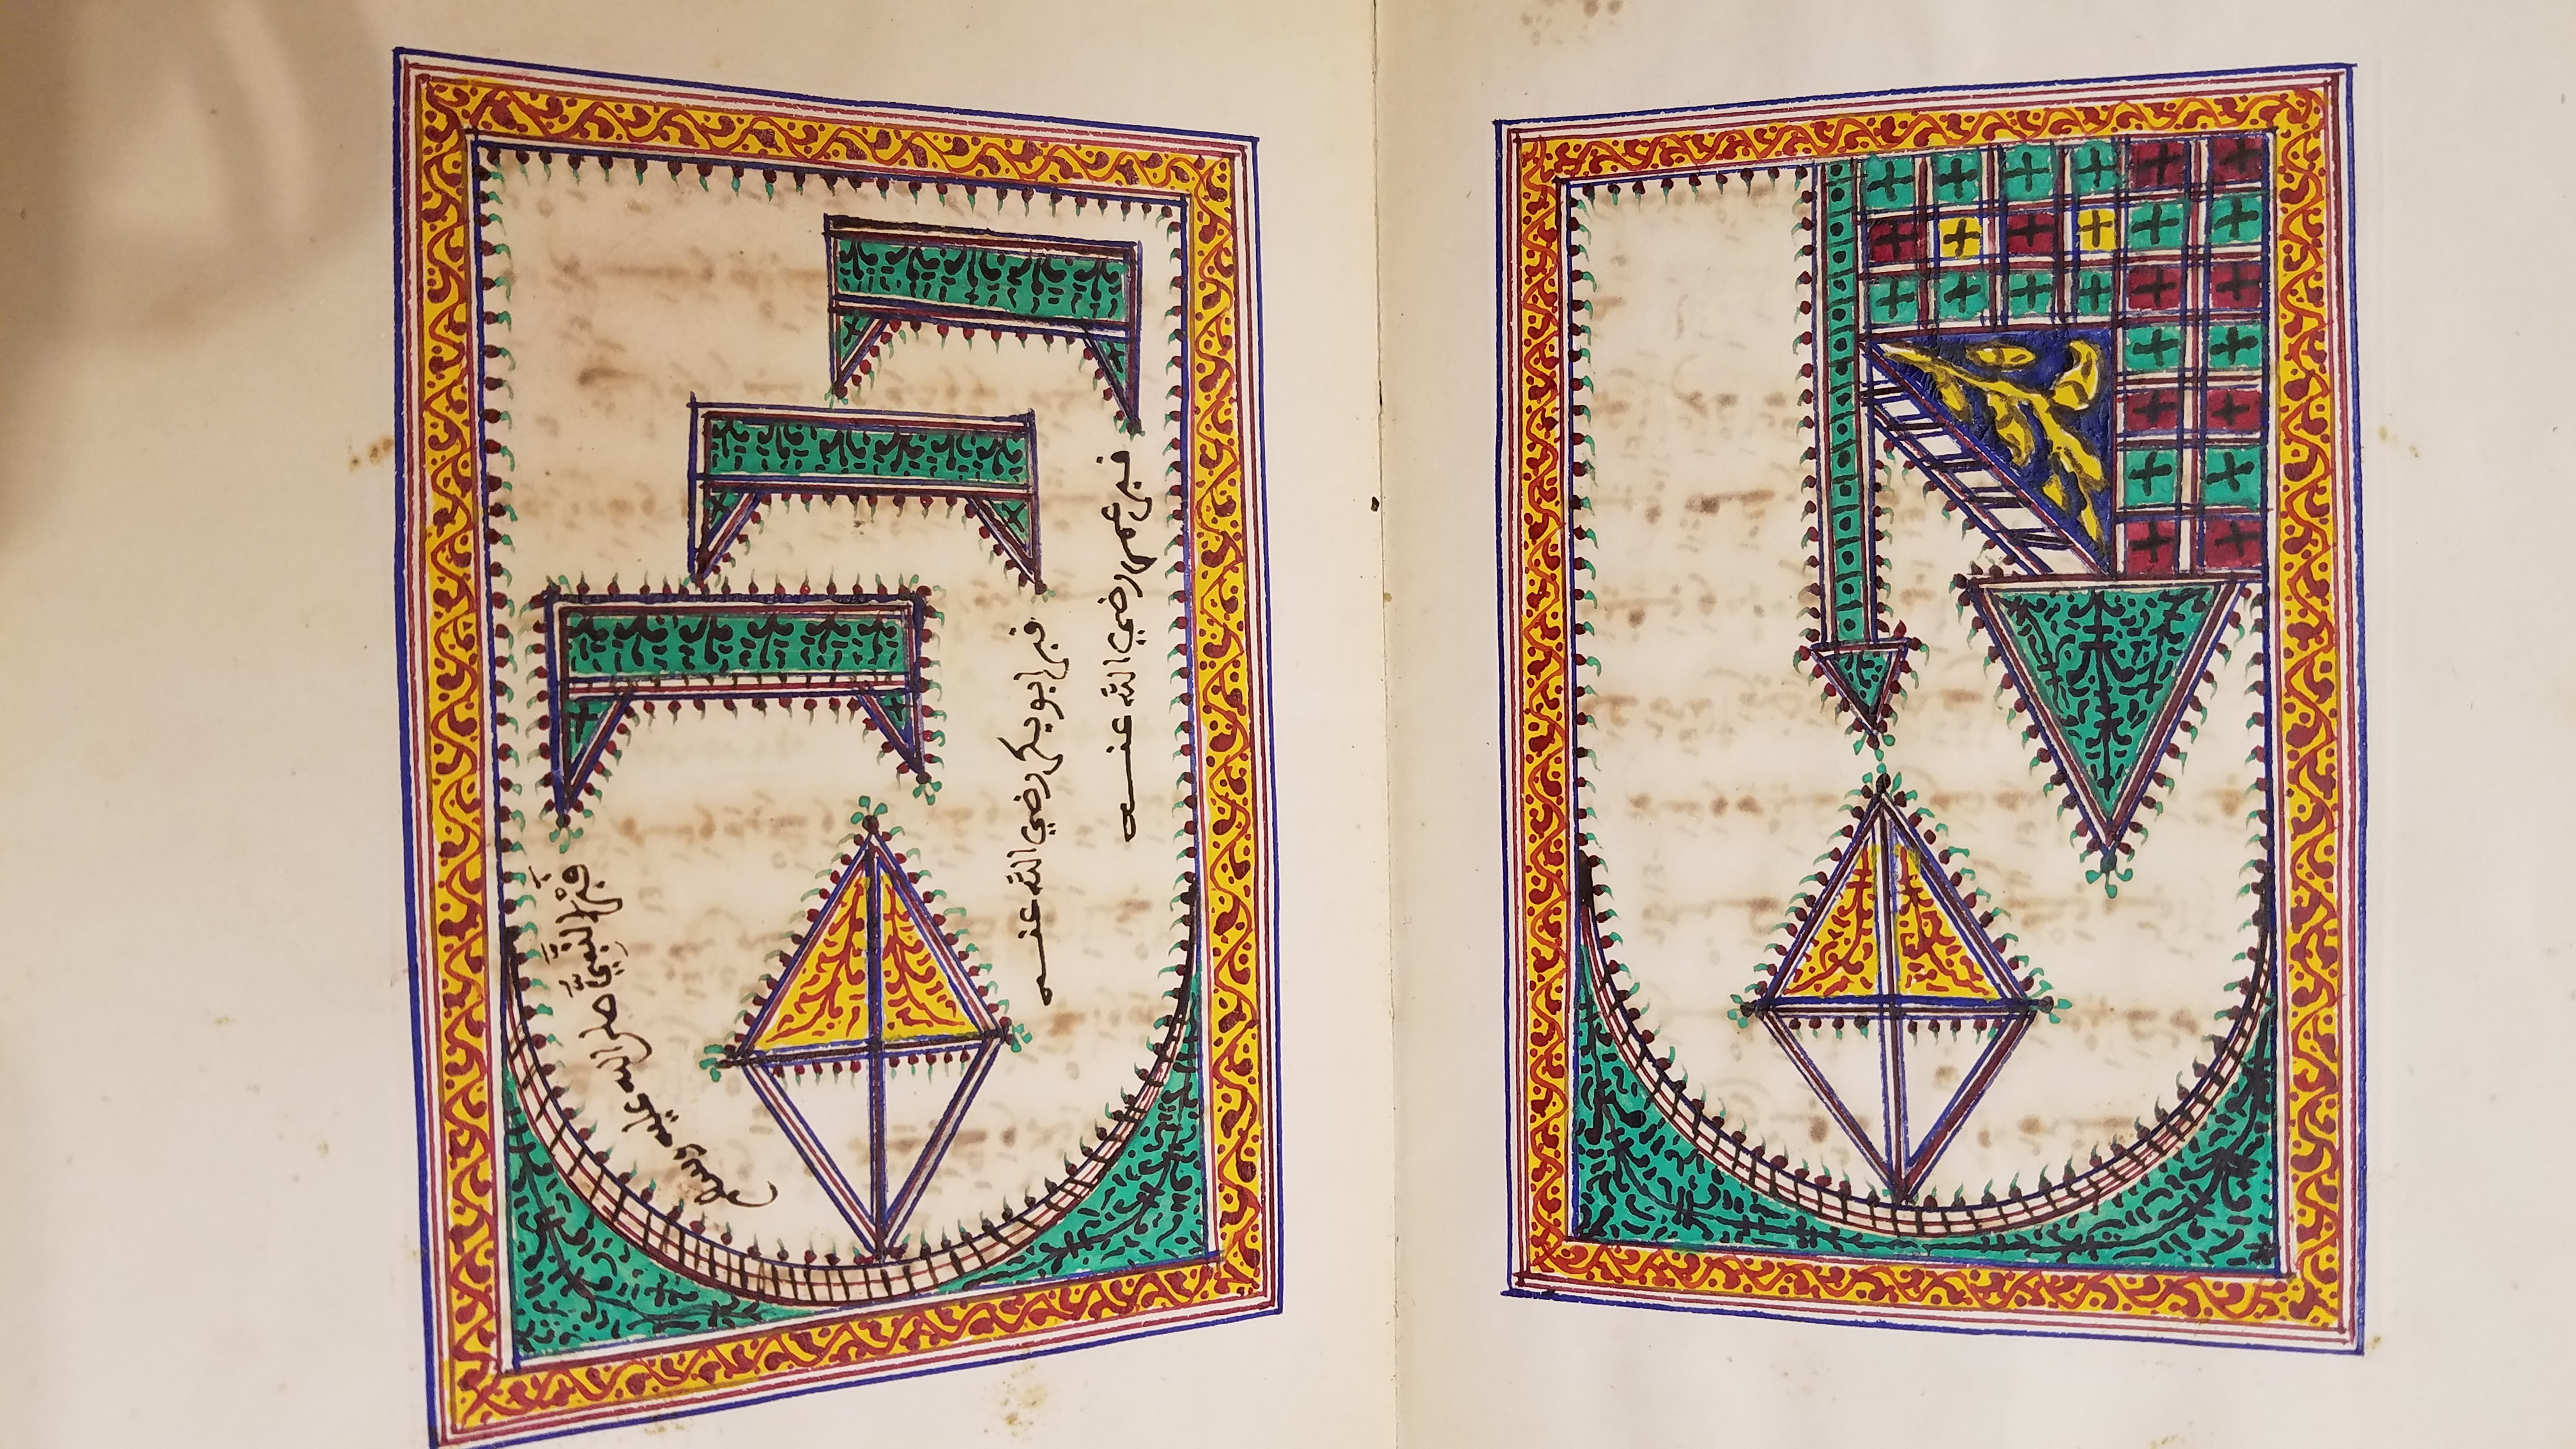 قَبْرُ النَّبِيِّ صلى الله عليه وسلم
قبر ابو بكر رضي الله عنه
قبر عمر رضي الله عنه